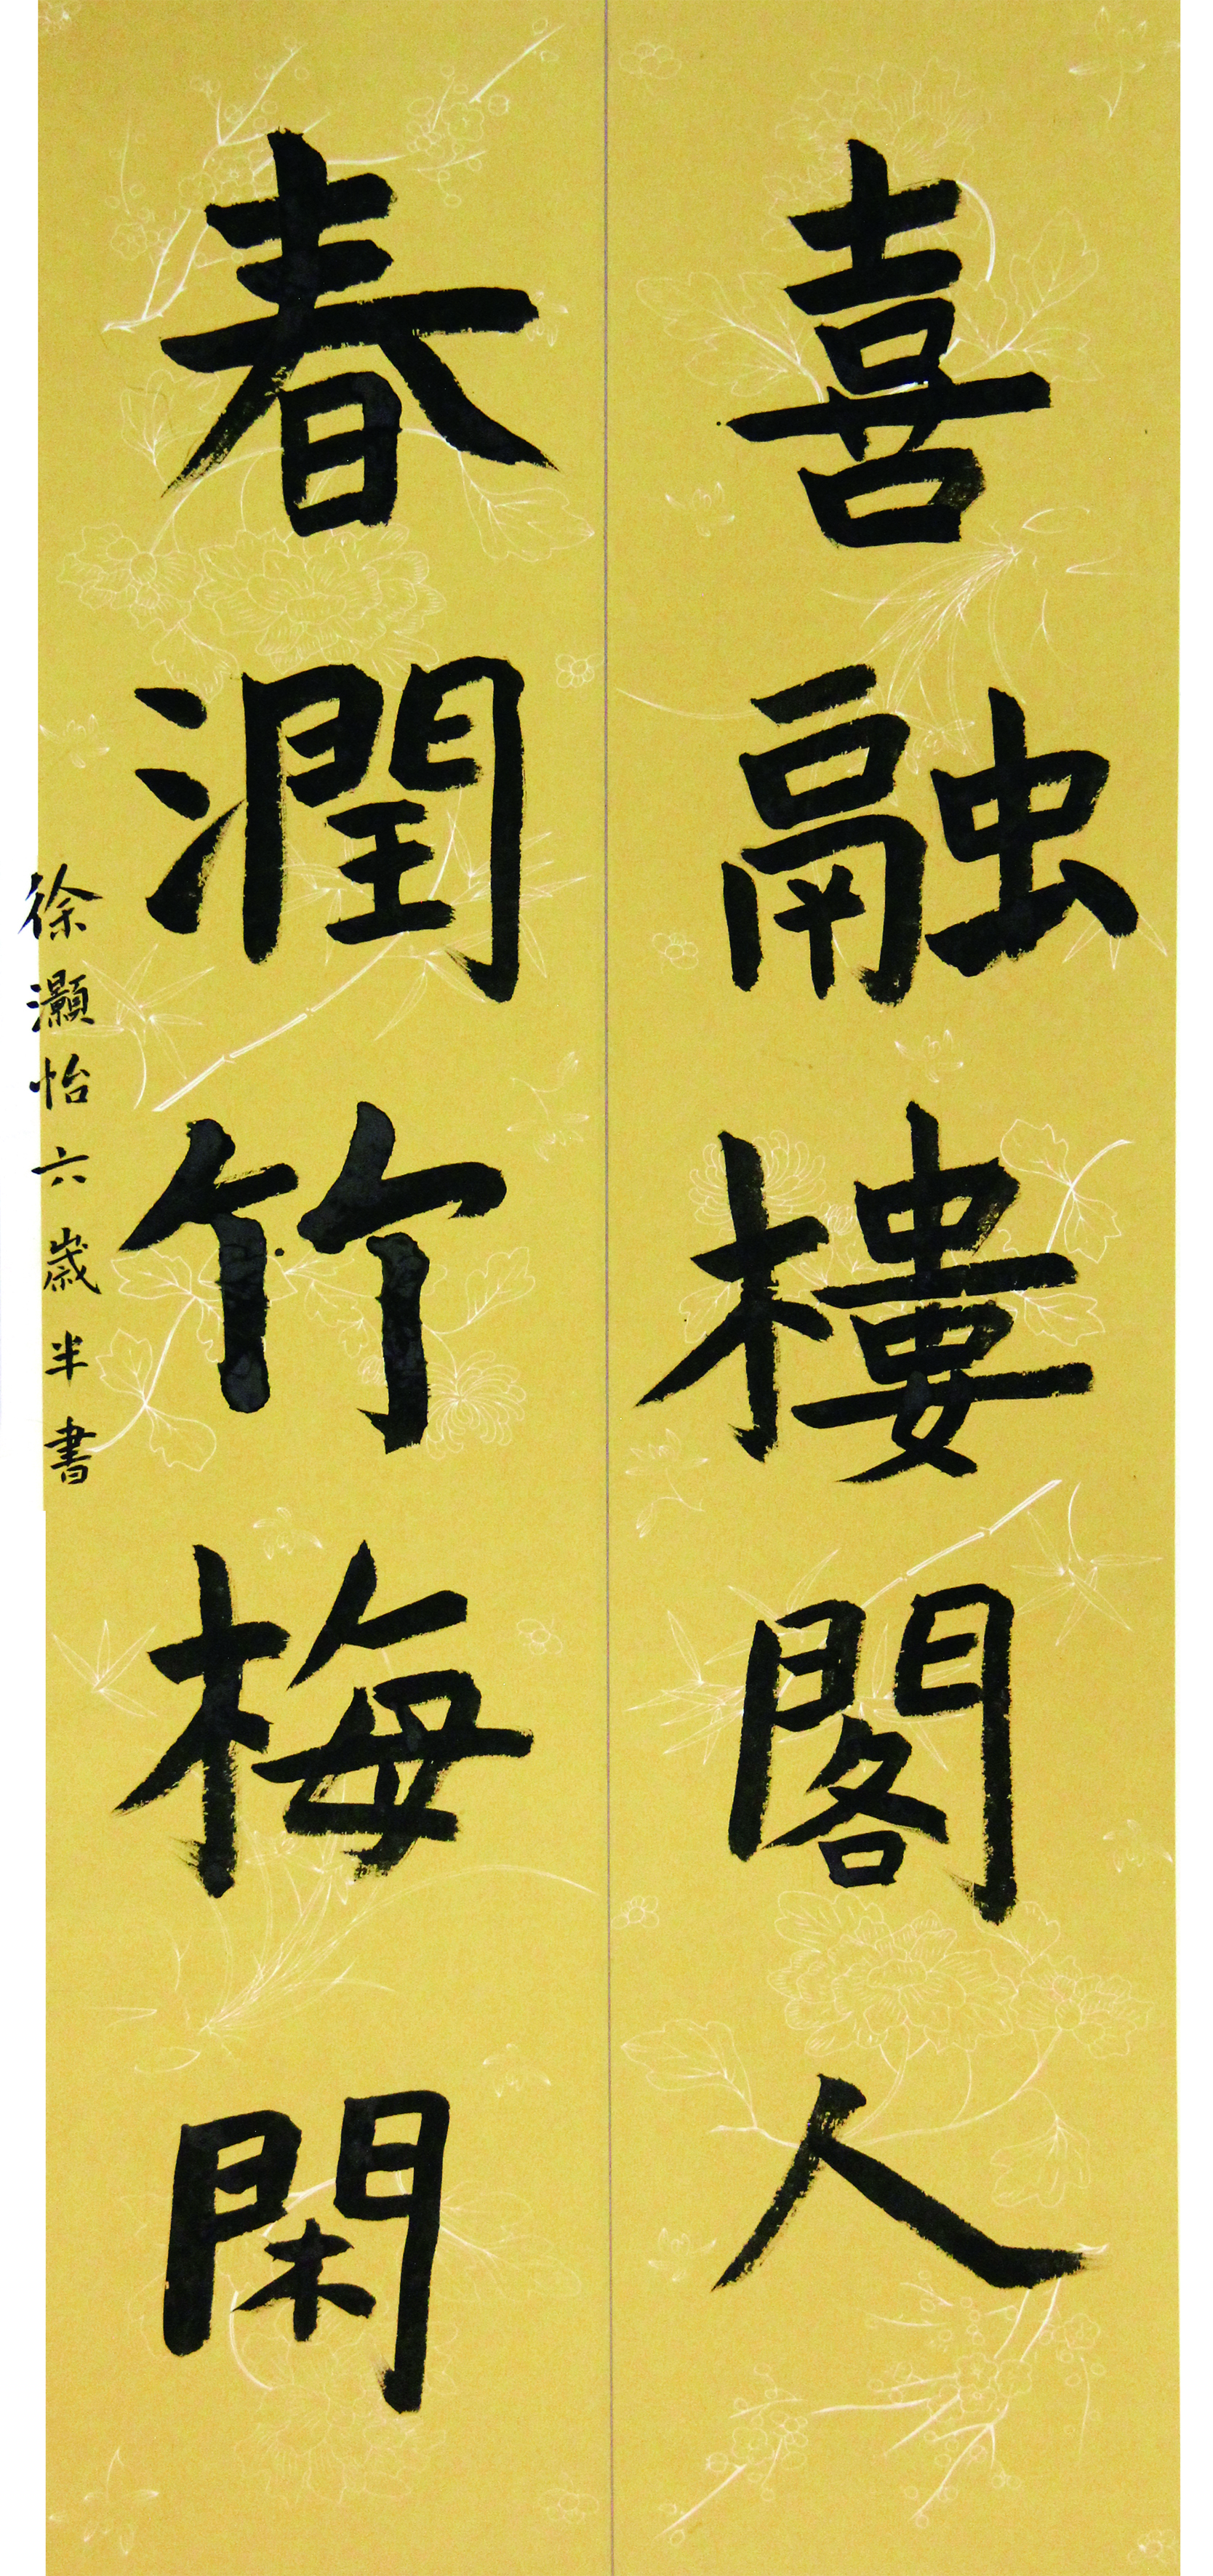 喜融樓閣人
春潤竹梅閑
徐灝怡六歲半書